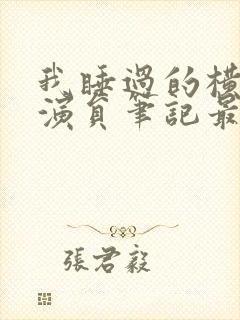 我睡過的橫
演員筆記最
張君毅